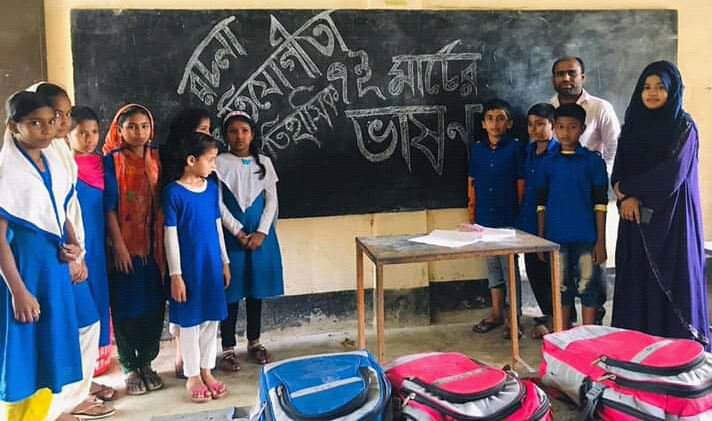 রচনা
প্রতিযোগীতা
ঐতিহাসিক ৭ই মার্চের
ভাষণ